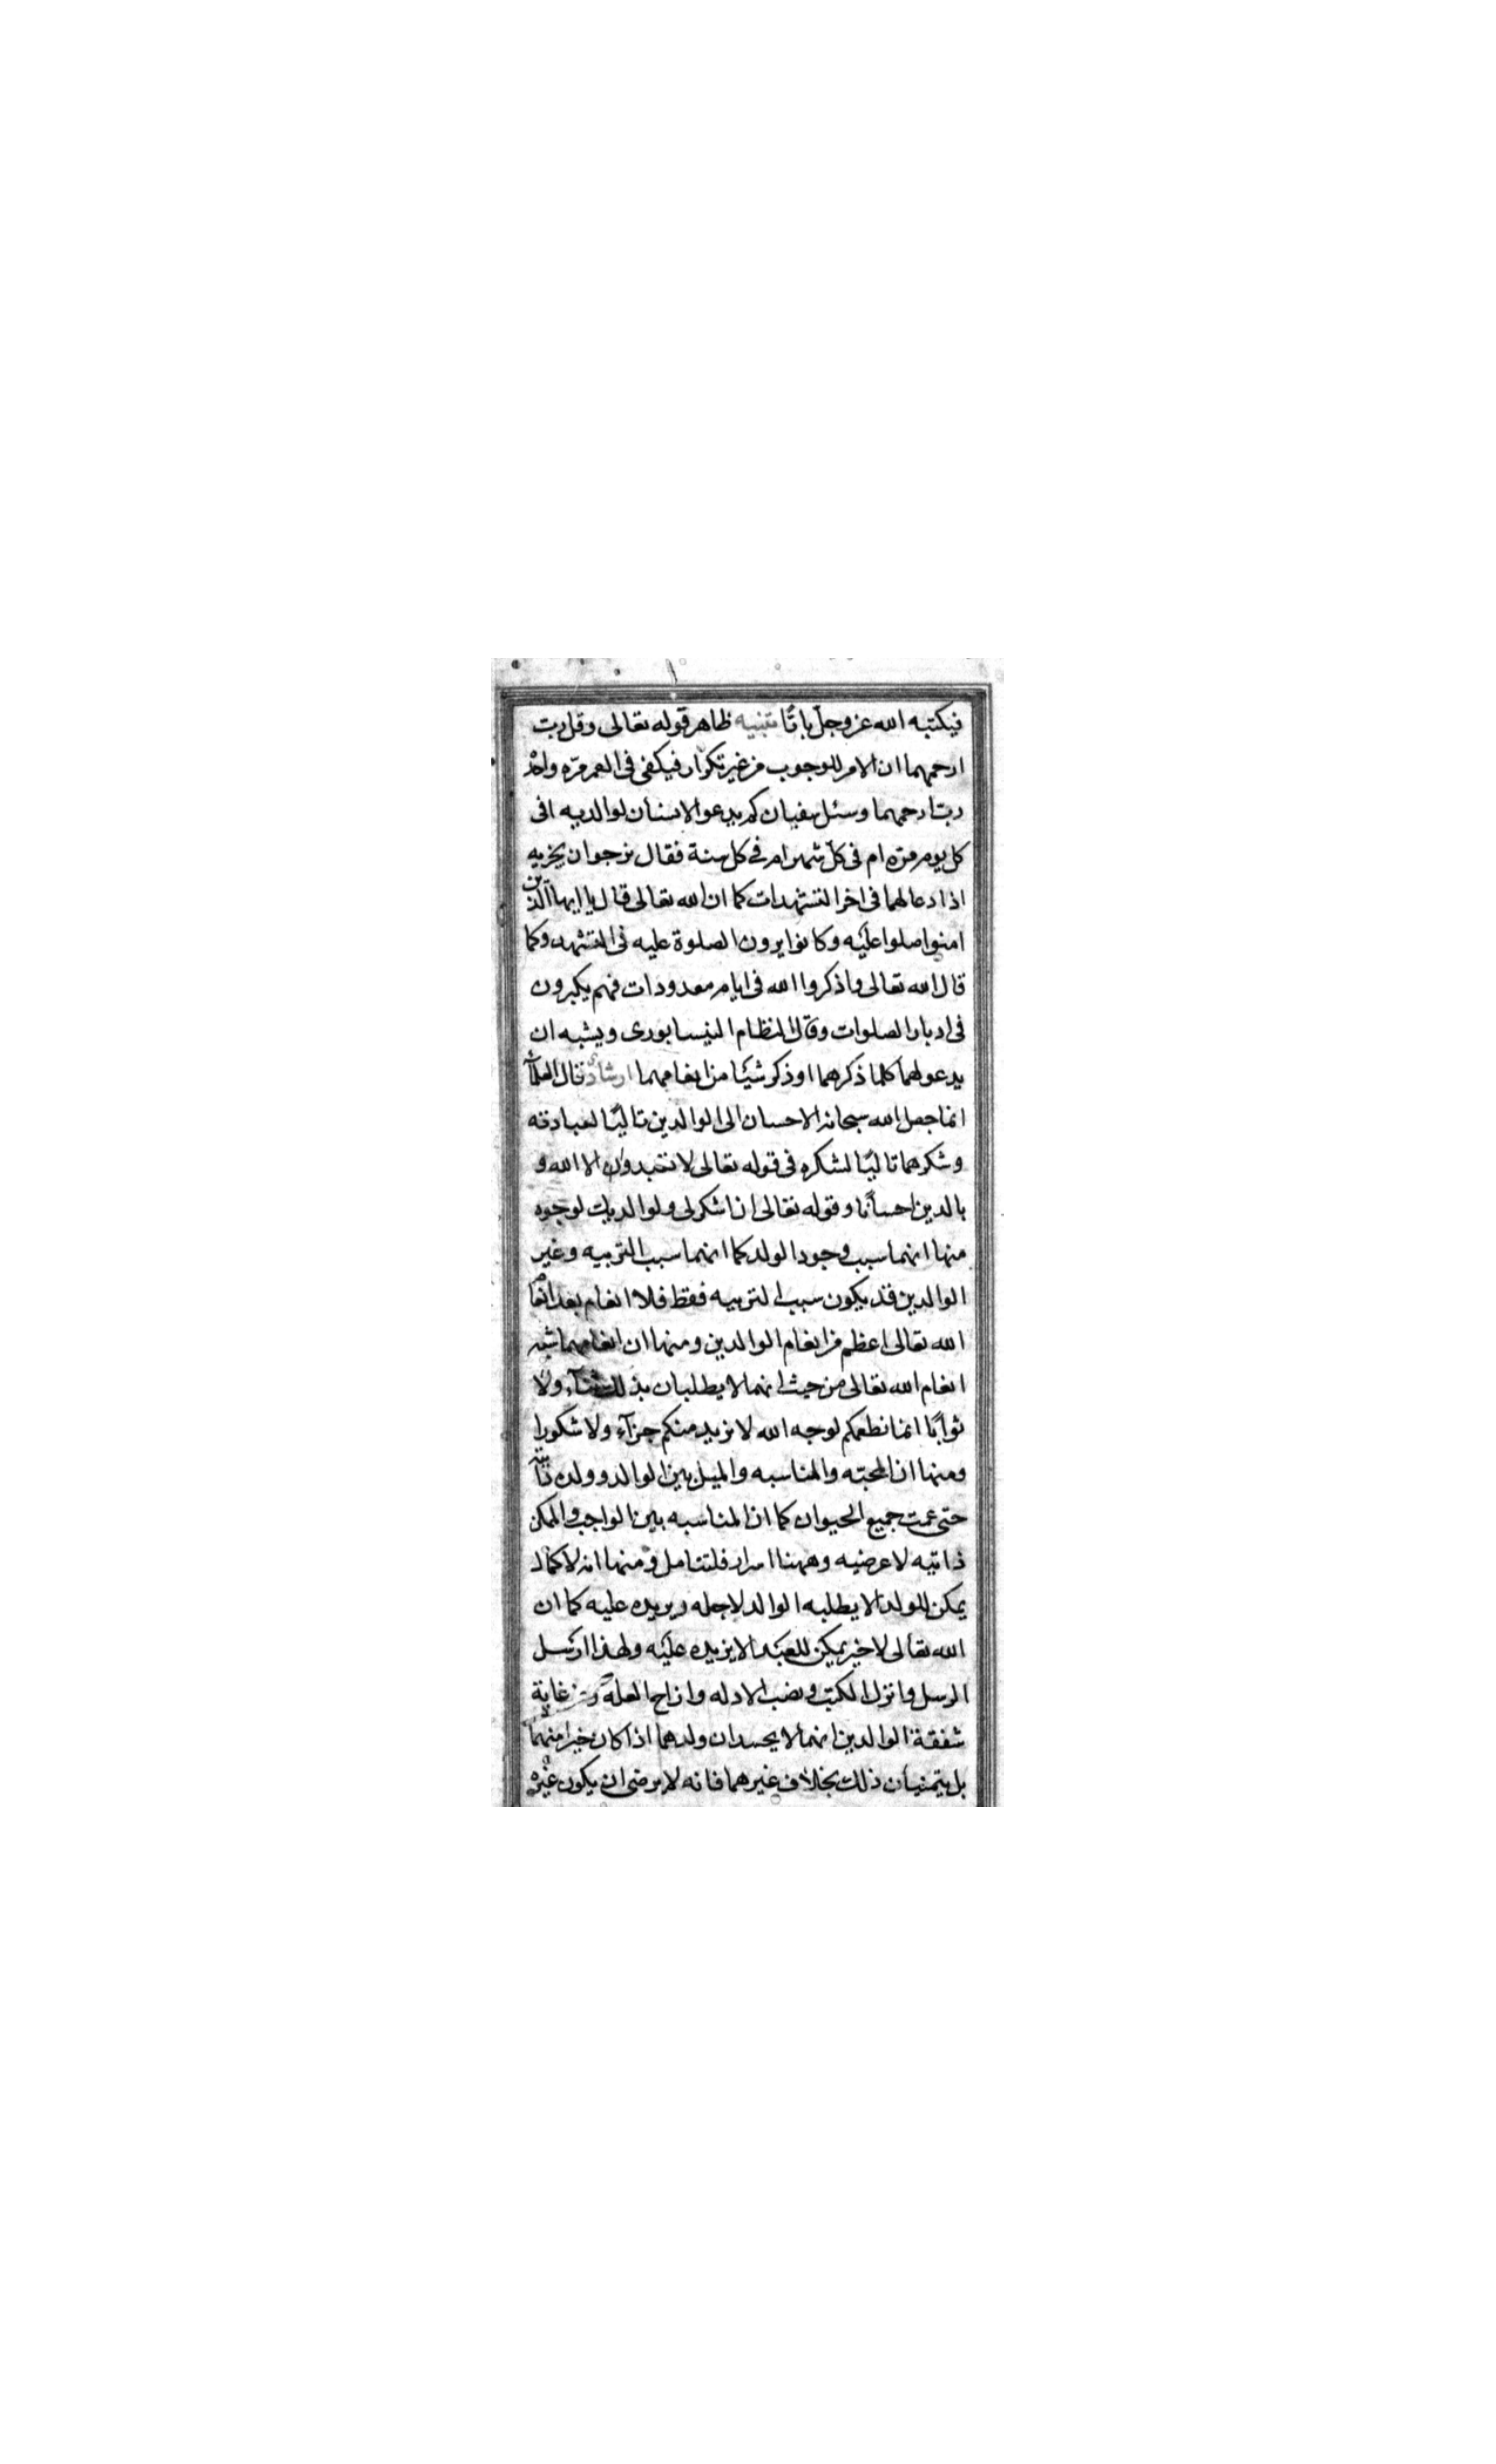 فيكتبه الله عز وجل باتًا تنبيه ظاهر قوله تعالى وقل رب
ارحمهما ان الامر للوجوب من غير تكرار فيكفى فى العمر مرّه واحد
رب ارحمهما وسئل سفيان كم يدعو الانسان لوالديه افى
كل يوم مرّه ام فى كل شهر ام فى كل سنة فقال نرجوا ان يجزيه
اذا دعا لهما فى اخر التشهدات كما ان الله تعالى قال يا ايها الذين
امنوا صلوا عليه وكانوا يرون الصلوة عليه فى التشهد وكما
قال الله تعالى واذكروا الله فى ايام معدودات فهم يكبرون
فى ادبار الصلوات وقال النظام النيسابورى ويشبه ان
يدعو لهما كلما ذكرهما او ذكر شيئا من انعامهما ارشاد قال العلمآ
انما جعل الله سبحانه الاحسان الى الوالدين تاليًا لعبادته
وشكرهما تاليًا لشكره فى قوله تعالى لا تعبدون الا الله و
بالدين احسانا وقوله تعالى ان اشكر لى ولوالديك لوجوه
منها انهما سبب وجود الولد كما انهما سبب التربيه وغير
الوالدين قد يكون سبب التربيه فقط فلا انعام بعد انعام
الله تعالى اعظم من انعام الوالدين ومنها ان انعامهما شبه
انعام الله تعالى من حيث انهما لا يطلبان بذلك ثنآء ولا
ثوابًا انما نطعمكم لوجه الله لا نريد منكم جزآء ولا شكورا
ومنها ان المحبّه والمناسبه والميل بين الوالد وولده ذاتيّه
حتى عمت جميع الحيوان كما ان المناسبه بين الواجب والممكن
ذاتيه لا عرضيه وههنا اسرار فلتتامل ومنها انه لا كمال
يمكن للولد الا يطلبه الوالد لاجله ويريده عليه كما ان
الله تعالى لا خير يمكن للعبد الا يريده عليه ولهذا ارسل
الرسل وانزل الكتب ونصب الادله وازاح العله ومن غاية
شفقة الوالدين انهما لا يحسدان ولدهما اذا كان خيرا منهما
بل يتمنيان ذلك بخلاف غيرهما فانه لا يرضى ان يكون غيره